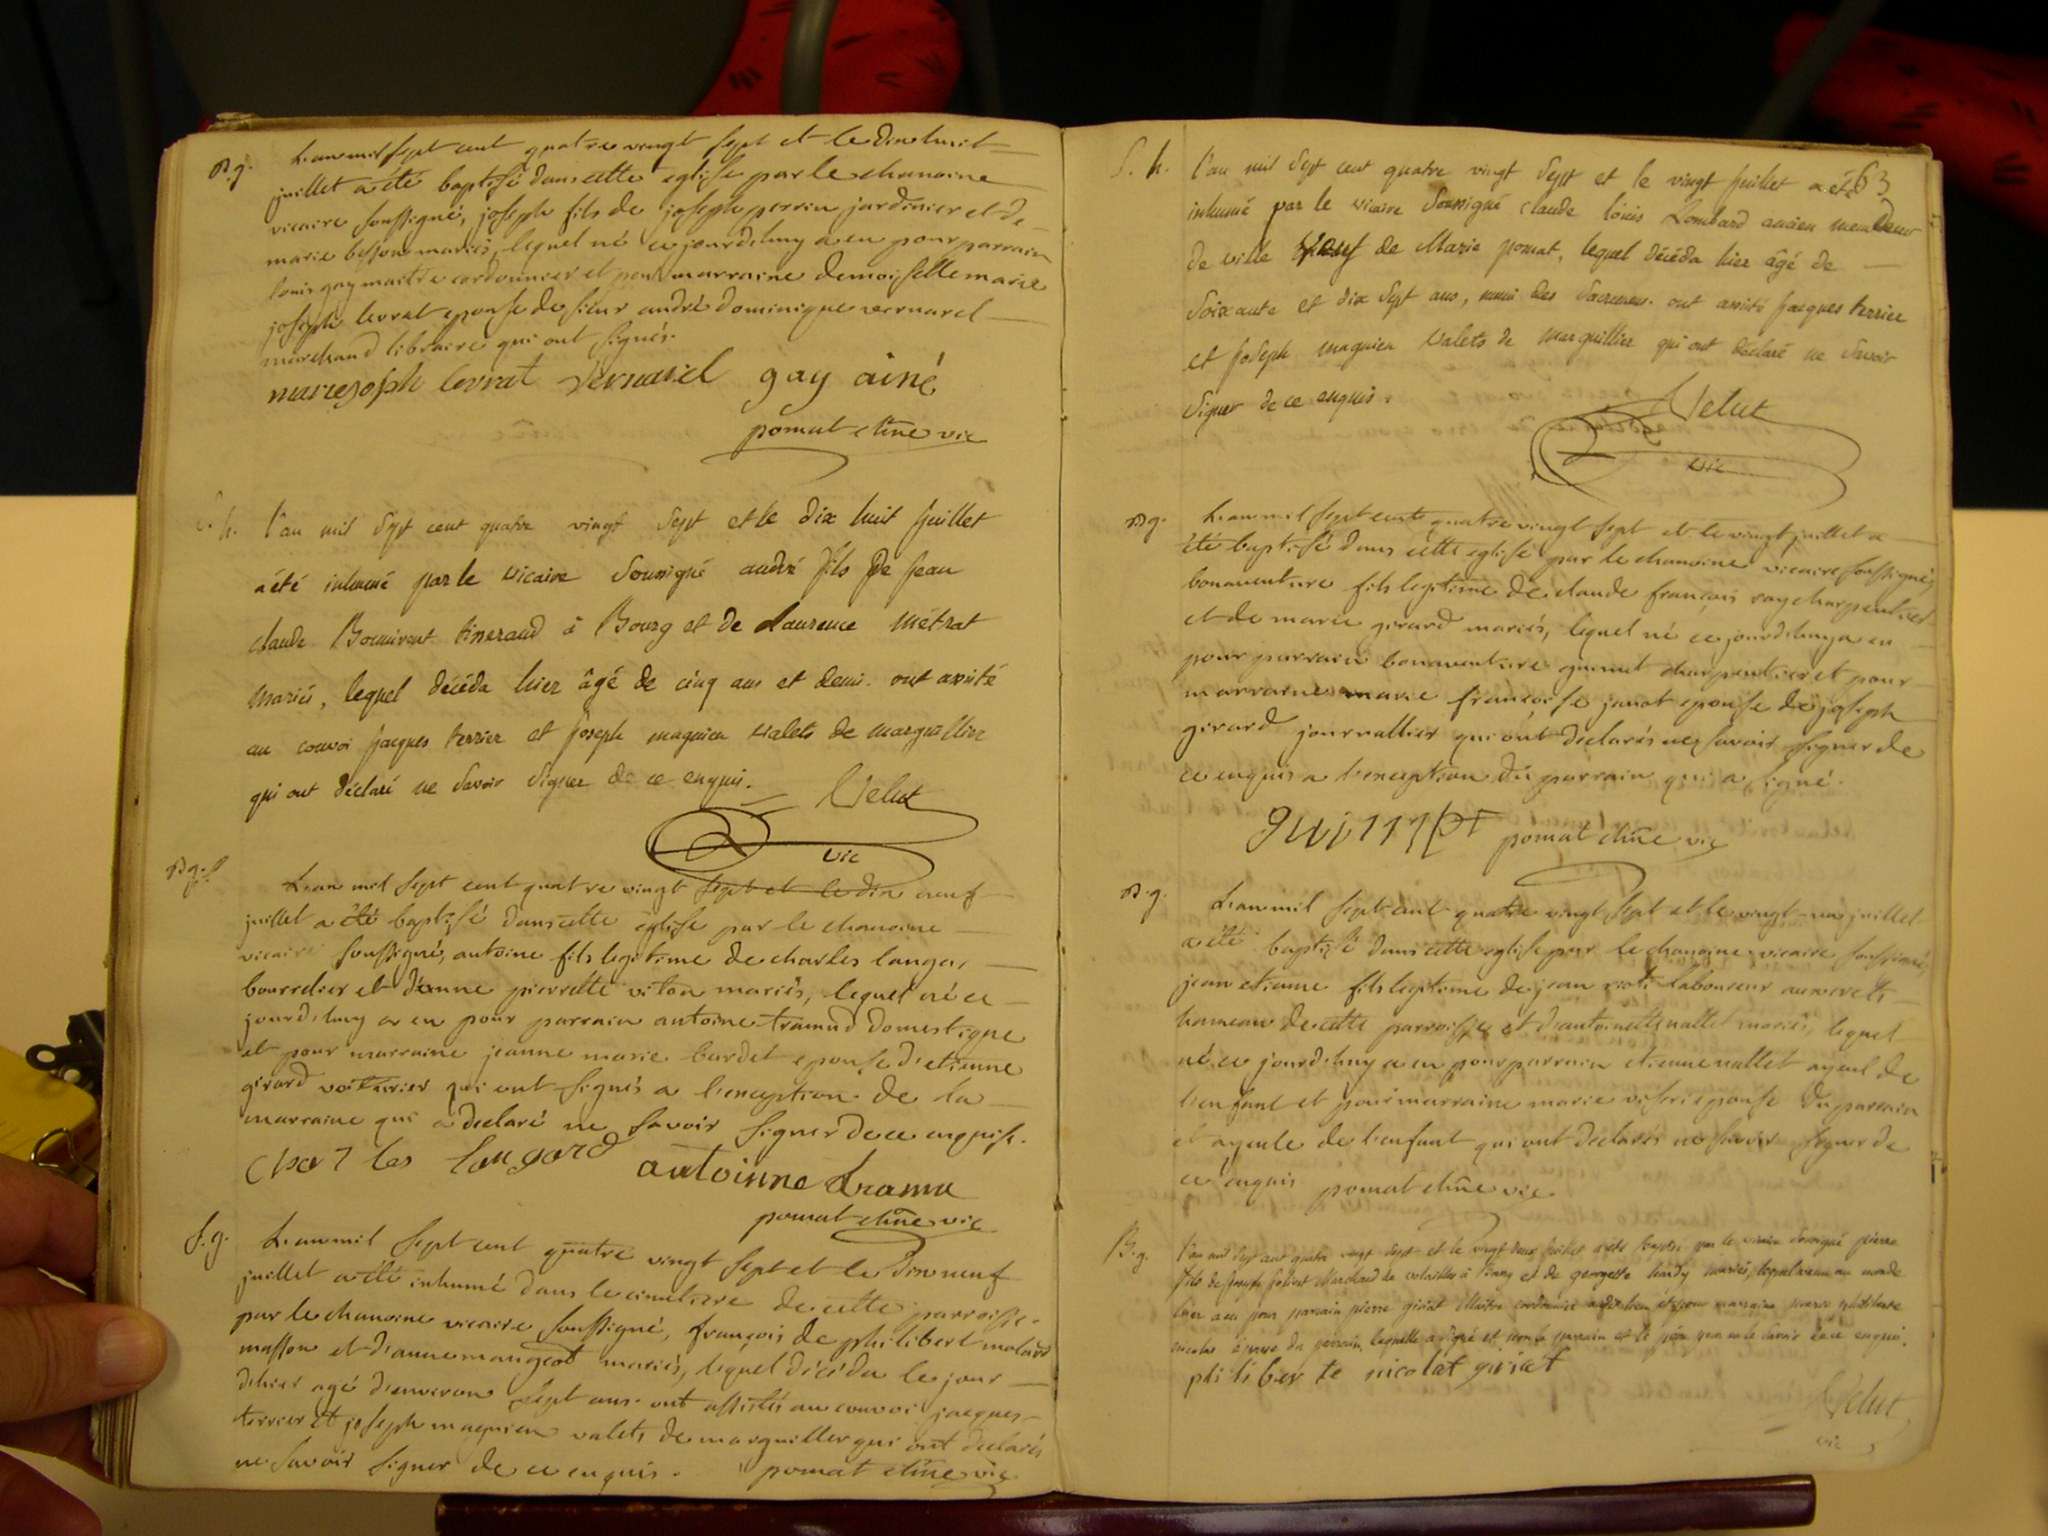 B.g. L'an mil sept cent quatre vingt sept et le dix huit
juillet a été baptisé dans cette eglise par le chanoine
vicaire soussigné, joseph fils de joseph perrin jardinier et de
marie besson mariés, lequel né ce jourdhuy a eu pour parrain
louis gay maitre cordonnier et pour marraine demoiselle marie
joseph levrat epouse de sieur andré dominique vernarel
marchand libraire qui ont signés.
marie joseph levrat vernarel gay ainé
pomat chne vic
S. h. L'an mil sept cent quatre vingt sept et le dix huit juillet
a été inhumé par le vicaire soussigné andré fils de jean
claude Bonnivent tisserand à Bourg et de Laurence Métrat
mariés, lequel décéda hier âgé de cinq ans et demi. ont assisté
au convoi jacques terrier et joseph magnien valets de marguillier
qui ont déclaré ne savoir signer de ce enquis.
Velut
vic
B.g. L'an mil sept cent quatre vingt sept et le dix neuf
juillet a été baptisé dans cette eglise par le chanoine
vicaire soussigné, antoine fils legitime de charles langar
bourrelier et d'anne pierrette viton mariés, lequel né ce
jourdhuy a eu pour parrain antoine tramud domestique
et pour marraine jeanne marie bardet epouse d'etienne
girard voiturier qui ont signés a l'exception de la
marraine qui a declaré ne savoir signer de ce enquise.
charles langard antoinne tramu
pomat chne vic
S.g. L'an mil sept cent quatre vingt sept et le dix neuf
juillet a été inhumé dans le cimetiere de cette parroisse
par le chanoine vicaire soussigné, françois de philibert molard
masson et d'anne mangeot mariés, lequel décéda le jour
d'hier agé d'environ sept ans. ont assistés au convoi jacques
terrier et joseph magnien valets de marguiller qui ont declarés
ne savoir signer de ce enquis. pomat chne vic
63
S. h. L'an mil sept cent quatre vingt sept et le vingt juillet a été
inhumé par le vicaire soussigné claude louis Lombard ancien
de ville veuf de Marie pomat, lequel décéda hier âgé de
soixante et dix sept ans, muni des sacremens. ont assisté jacques terrier
et joseph magnien valets de marguillier qui ont déclaré ne savoir
signer de ce enquis.
Velut
vic
B.g. L'an mil sept cent quatre vingt sept et le vingt juillet a
été baptisé dans cette eglise par le chanoine vicaire soussigné,
bonaventure fils legitime de claude françois ray charpentier
et de marie girard mariés, lequel né ce jourdhuy a eu
pour parrain bonaventure charpentier et pour
marraine marie françoise janot epouse de joseph
girard journallier qui ont declarés ne savoir signer de
ce enquis a l'exception du parrain qui a signé.
pomat chne vic
B.g. L'an mil sept cent quatre vingt sept et le vingt-un juillet
a été baptisé dans cette eglise par le chanoine vicaire soussigné,
jean etienne fils legitime de jean laboureur aux
hameau de cette parroisse et d'antoinette vallet mariés, lequel
né ce jourdhuy a eu pour parrain etienne vallet ayeul de
l'enfant et pour marraine marie epouse du parrain
et ayeule de l'enfant qui ont declarés ne savoir signer de
ce enquis pomat chne vic
B.g. L'an mil sept cent quatre vingt sept et le vingt deux juillet a été baptisé par le vicaire soussigné pierre
fils de joseph Marchand de volailles à Bourg et de georgette hardy mariés, lequel venu au monde
hier a eu pour parrain pierre giriat Maitre cordonnier audit lieu et pour marraine philiberte
nicolas épouse du parrain, laquelle a signé et non le parrain et le père pour ne le savoir de ce enquis.
philiberte nicolat giriat
Velut
vic